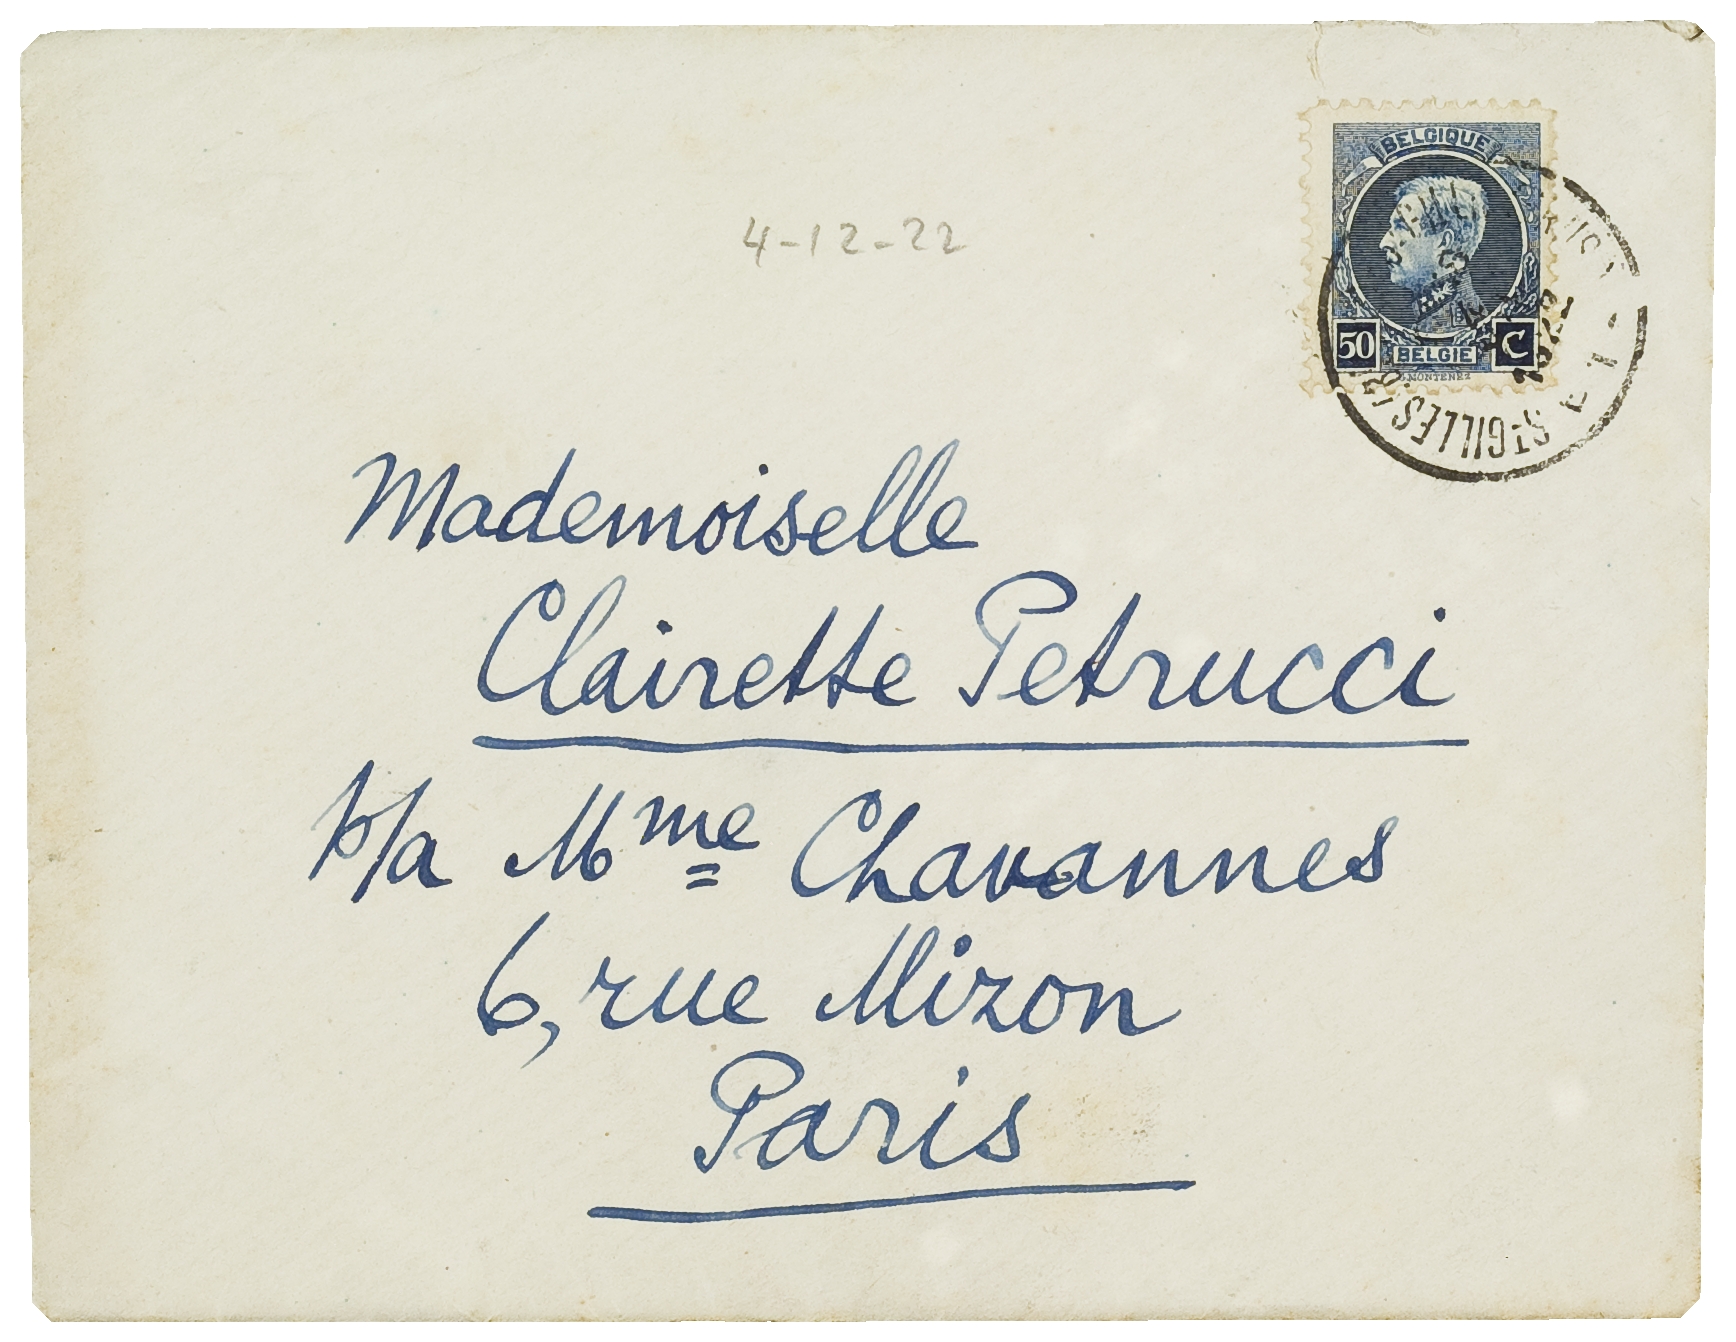 4-12-22
BELGIQUE
50 BELGIE C
G. MONTENEZ
ST GILLES
1922
Mademoiselle
Clairette Petrucci
p/a Mme Chavannes
6, rue Mizon
Paris